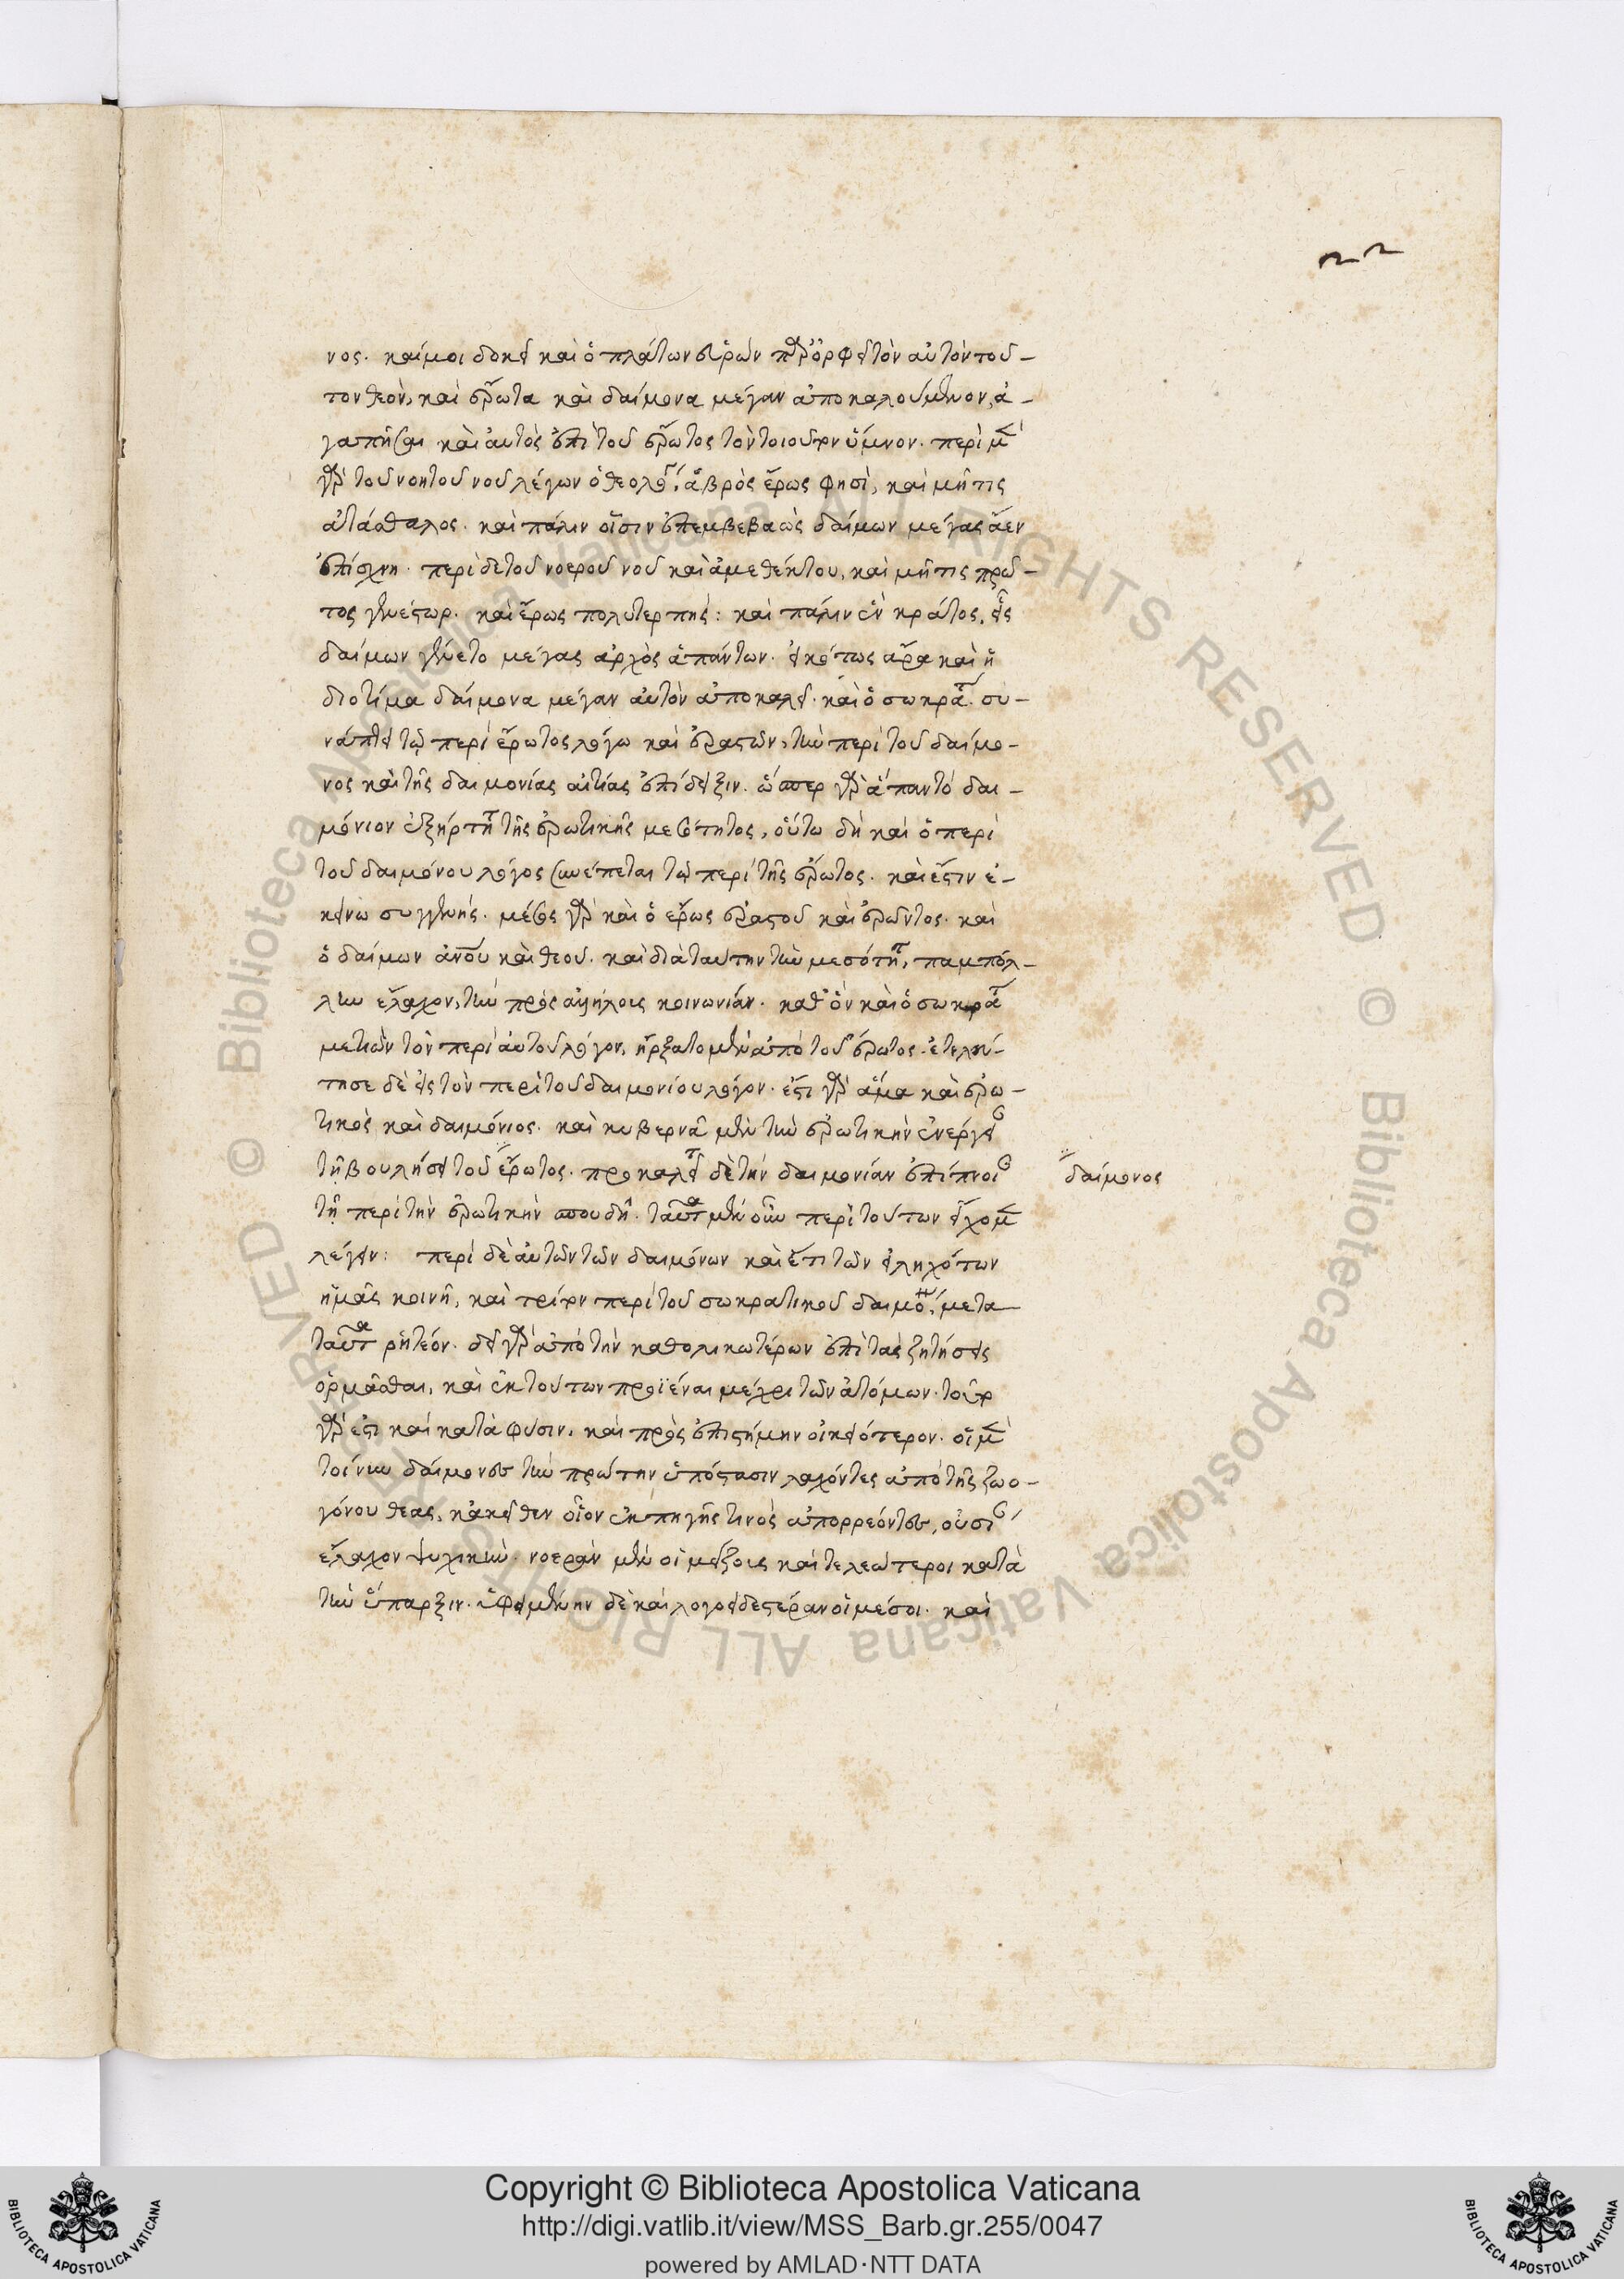 22
νος. καί μοι δοκεῖ καὶ ὁ πλάτων εὑρὼν παρ' ὀρφεῖ τὸν αὐτὸν τοῦ-
τον θεὸν, καὶ ἔρωτα καὶ δαίμονα μέγαν ἀποκαλούμενον, ἀ-
γαπῆσαι καὶ αὐτὸς ἐπὶ τοῦ ἔρωτος τὸν τοιοῦτον ὕμνον. περὶ μὲν
γὰρ τοῦ νοητοῦ νοῦ λέγων ὁ θεολόγος, ἁβρὸς ἔρως φησὶ, καὶ μῆτις
ἀτάσθαλος. καὶ πάλιν οἷσιν ἐπεμβεβαὼς δαίμων μέγας ἀὲν
ἐπίσχνη. περὶ δὲ τοῦ νοεροῦ νοῦ καὶ ἀμεθέκτου, καὶ μῆτις πρῶ-
τος γενέτωρ. καὶ ἔρως πολυτερπής: καὶ πάλιν ἓν κράτος, εἷς
δαίμων γένετο μέγας ἀρχὸς ἁπάντων. εἰκότως ἄρα καὶ ἡ
διοτίμα δαίμονα μέγαν αὐτὸν ἀποκαλεῖ. καὶ ὁ σωκράτης συ-
νάπτει τῷ περὶ ἔρωτος λόγω καὶ ἐραστῶν, τὴν περὶ τοῦ δαίμο-
νος καὶ τῆς δαιμονίας αἰτίας ἐπίδειξιν. ὥσπερ γὰρ ἅπαν τὸ δαι-
μόνιον ἐξήρτηται τῆς ἐρωτικῆς μεσότητος, οὕτω δὴ καὶ ὁ περὶ
τοῦ δαιμόνου λόγος συνέπεται τῷ περὶ τῆς ἔρωτος. καὶ ἔστιν ἐ-
κείνω συγγενής. μέσος γὰρ καὶ ὁ ἔρως ἐραστοῦ καὶ ἐρῶντος. καὶ
ὁ δαίμων ἀνοῦ καὶ θεοῦ. καὶ διὰ ταύτην τὴν μεσότητα, παμπόλ-
λην ἔλαχον, τὴν πρὸς ἀλλήλους κοινωνίαν. καθ' ὃν καὶ ὁ σωκράτης
μετιὼν τὸν περὶ αὐτοῦ λόγον, ἤρξατο μὲν ἀπὸ τοῦ ἔρωτος. ἐτελεύ-
τησε δὲ εἰς τὸν περὶ τοῦ δαιμονίου λόγον. ἔστι γὰρ ἅμα καὶ ἐρω-
τικὸς καὶ δαιμόνιος. καὶ κυβερνᾷ μὲν τὴν ἐρωτικὴν ἐνέργειαν
τῇ βουλήσει τοῦ ἔρωτος. προκαλεῖται δὲ τὴν δαιμονίαν ἐπίπνοιαν
δαίμονος
τῇ περὶ τὴν ἐρωτικὴν σπουδῇ. ταῦτα μὲν οὖν περὶ τούτων εἴχομεν
λέγειν: περὶ δὲ αὐτῶν τῶν δαιμόνων καὶ ἔτι τῶν εἰληχότων
ἡμᾶς κοινῇ, καὶ τρίτον περὶ τοῦ σωκρατικοῦ δαιμονίου, μετα
ταῦτα ῥητέον. δεῖ γὰρ ἀπὸ τὴν καθολικωτέρων ἐπὶ τὰς ζητήσεις
ὁρμᾶσθαι, καὶ ἐκ τούτων προϊέναι μέχρι τῶν ἀτόμων. τοῦτο
γάρ ἐστι καὶ κατὰ φύσιν, καὶ πρὸς ἐπιστήμην οἰκειότερον. οἱ μὲν
τοίνυν δαίμονες τὴν πρώτην ὑπόστασιν λαχόντες ἀπὸ τῆς ζωο-
γόνου θεᾶς, κἀκεῖθεν οἷον ἐκ πηγῆς τινὸς ἀπορρέοντες, οὐσίαν
ἔλαχον ψυχικὴν. νοερὰν μὲν οἱ μείζους καὶ τελεώτεροι κατὰ
τὴν ὕπαρξιν. ὑφειμένην δὲ καὶ λογοειδεστέραν οἱ μέσοι. καὶ
Copyright © Biblioteca Apostolica Vaticana
http://digi.vatlib.it/view/MSS_Barb.gr.255/0047
powered by AMLAD·NTT DATA
BIBLIOTECA APOSTOLICA VATICANA
BIBLIOTECA APOSTOLICA VATICANA
© Biblioteca Apostolica Vaticana ALL RIGHTS RESERVED
© Biblioteca Apostolica Vaticana ALL RIGHTS RESERVED